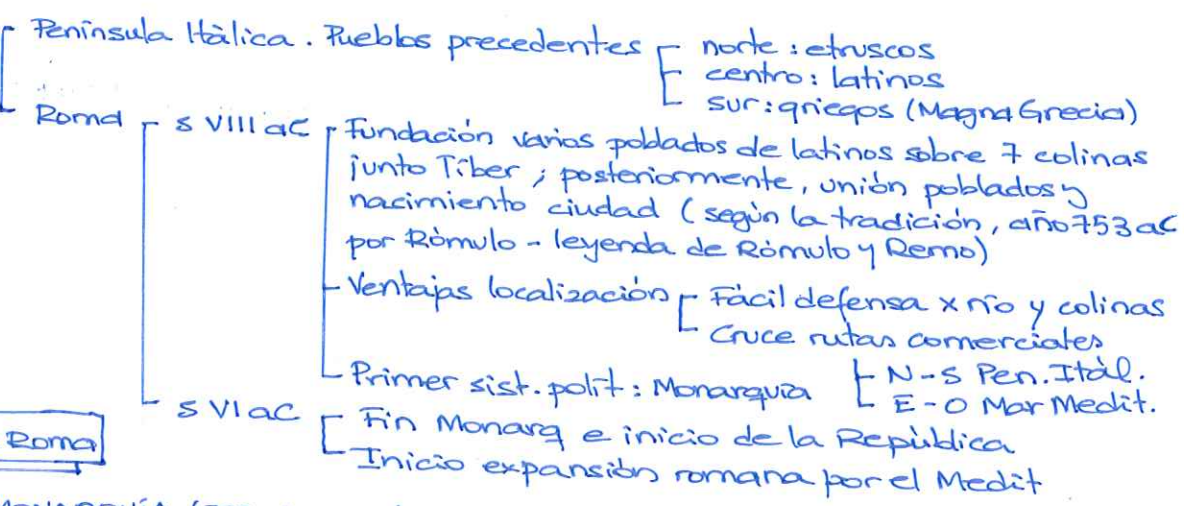 Península Itàlica. Pueblos precedentes
norte: etruscos
centro: latinos
sur: griegos (Magna Grecia)
Roma
s VIII aC
Fundación varios poblados de latinos sobre 7 colinas
junto Tíber; posteriormente, unión poblados y
nacimiento ciudad (según la tradición, año 753 aC
por Ròmulo - leyenda de Ròmulo y Remo)
Ventajas localización
Fàcil defensa x río y colinas
Cruce rutas comerciales
N-S Pen. Itàl.
E-O Mar Medit.
Primer sist. polít: Monarquía
s VI aC
Fin Monarq e inicio de la Repùblica
Inicio expansión romana por el Medit
Roma